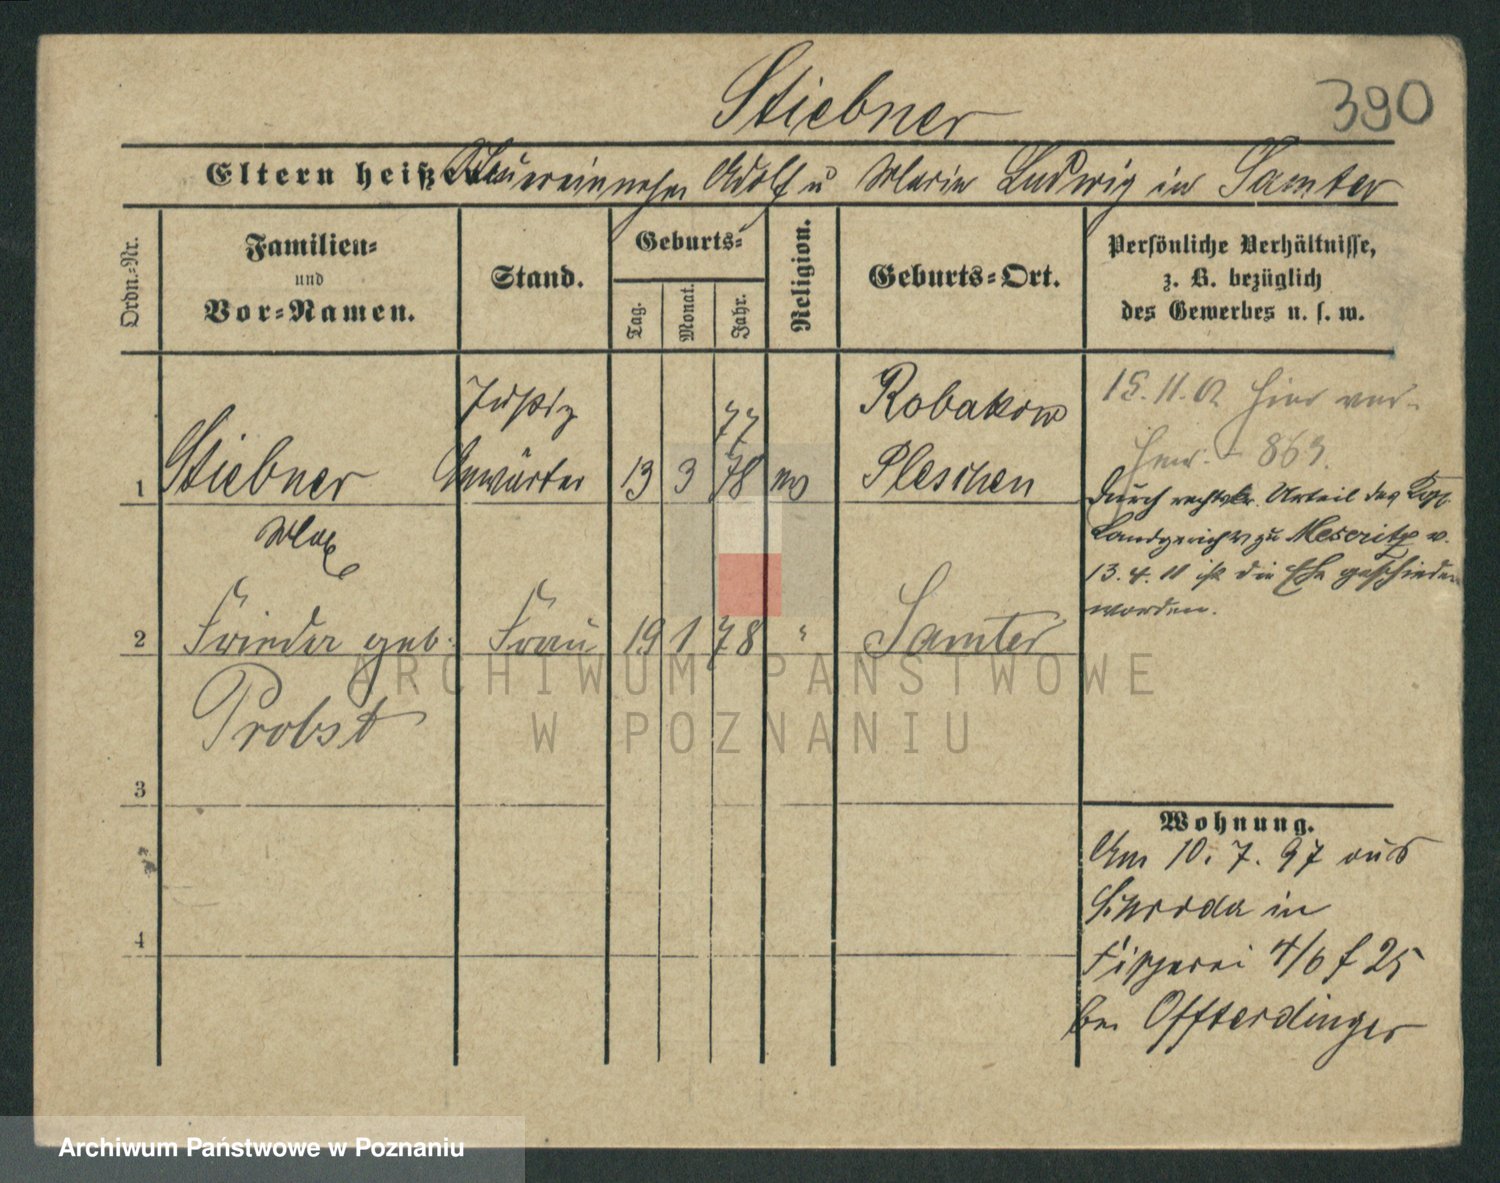 Stiebner
390
Eltern heißen Steuereinnehmer Adolf u Marie Ludwig in Samter
Ordn.-Nr.
Familien-
und
Vor-Namen.
Stand.
Geburts-
Tag.
Monat.
Jahr.
Religion.
Geburts-Ort.
Persönliche Verhältnisse,
z. B. bezüglich
des Gewerbes u. s. w.
1
Stiebner
Max
Justiz
Anwärter
13 3 78
77
Robakow
Pleschen
15.11.02 hier
863.
durch rechtskr. Urteil des Kgl.
Landgerichts zu Meseritz v.
13.4.11 ist die Ehe geschieden
worden.
2
Frieda geb.
Probst
Frau
19 1 78
"
Samter
3
4
Wohnung.
Am 10.7.97 aus
Schroda in
Fischerei 4/6 f 25
bei Offterdinger
ARCHIWUM PAŃSTWOWE
W POZNANIU
Archiwum Państwowe w Poznaniu